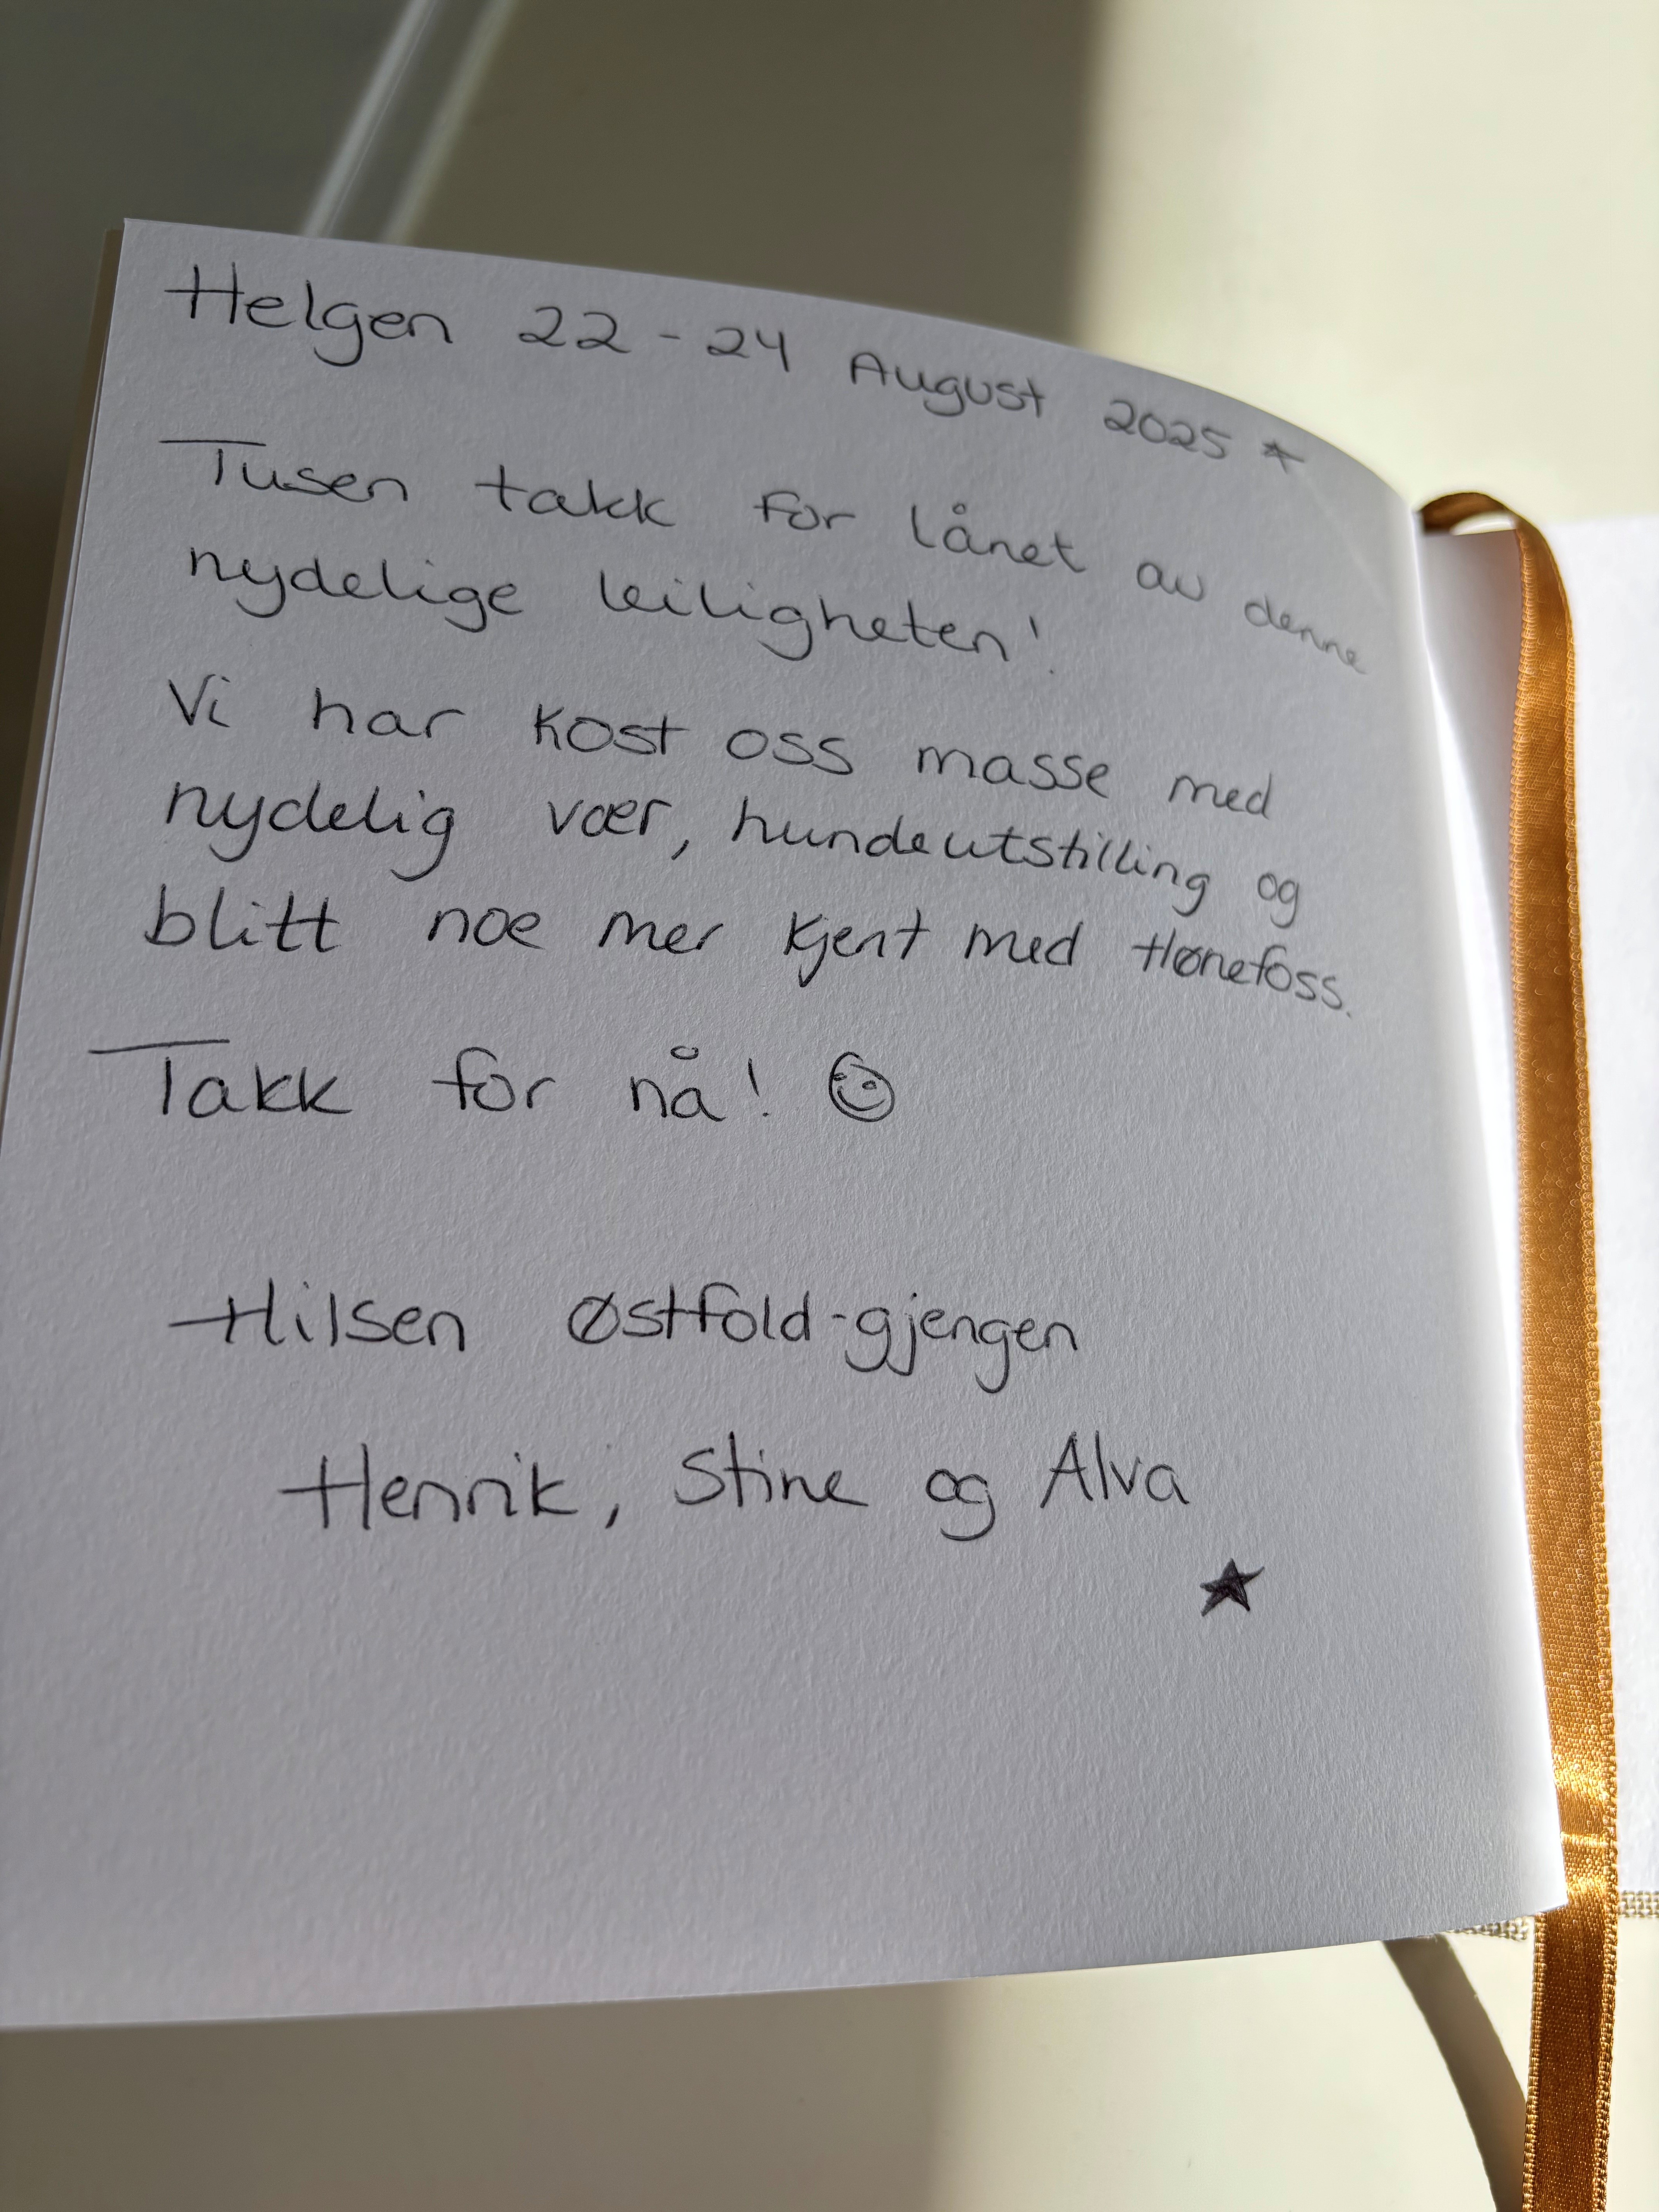 Helgen 22-24 August 2025 ☆
Tusen takk for lånet av denne
nydelige leiligheten!
Vi har kost oss masse med
nydelig vær, hundeutstilling og
blitt noe mer kjent med Hønefoss.
Takk for nå! ☺
Hilsen Østfold-gjengen
Henrik, Stine og Alva
★